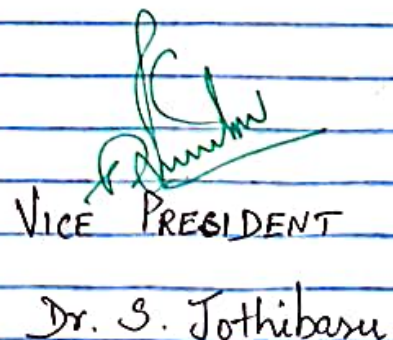 VICE PRESIDENT
Dr. S. Jothibasu